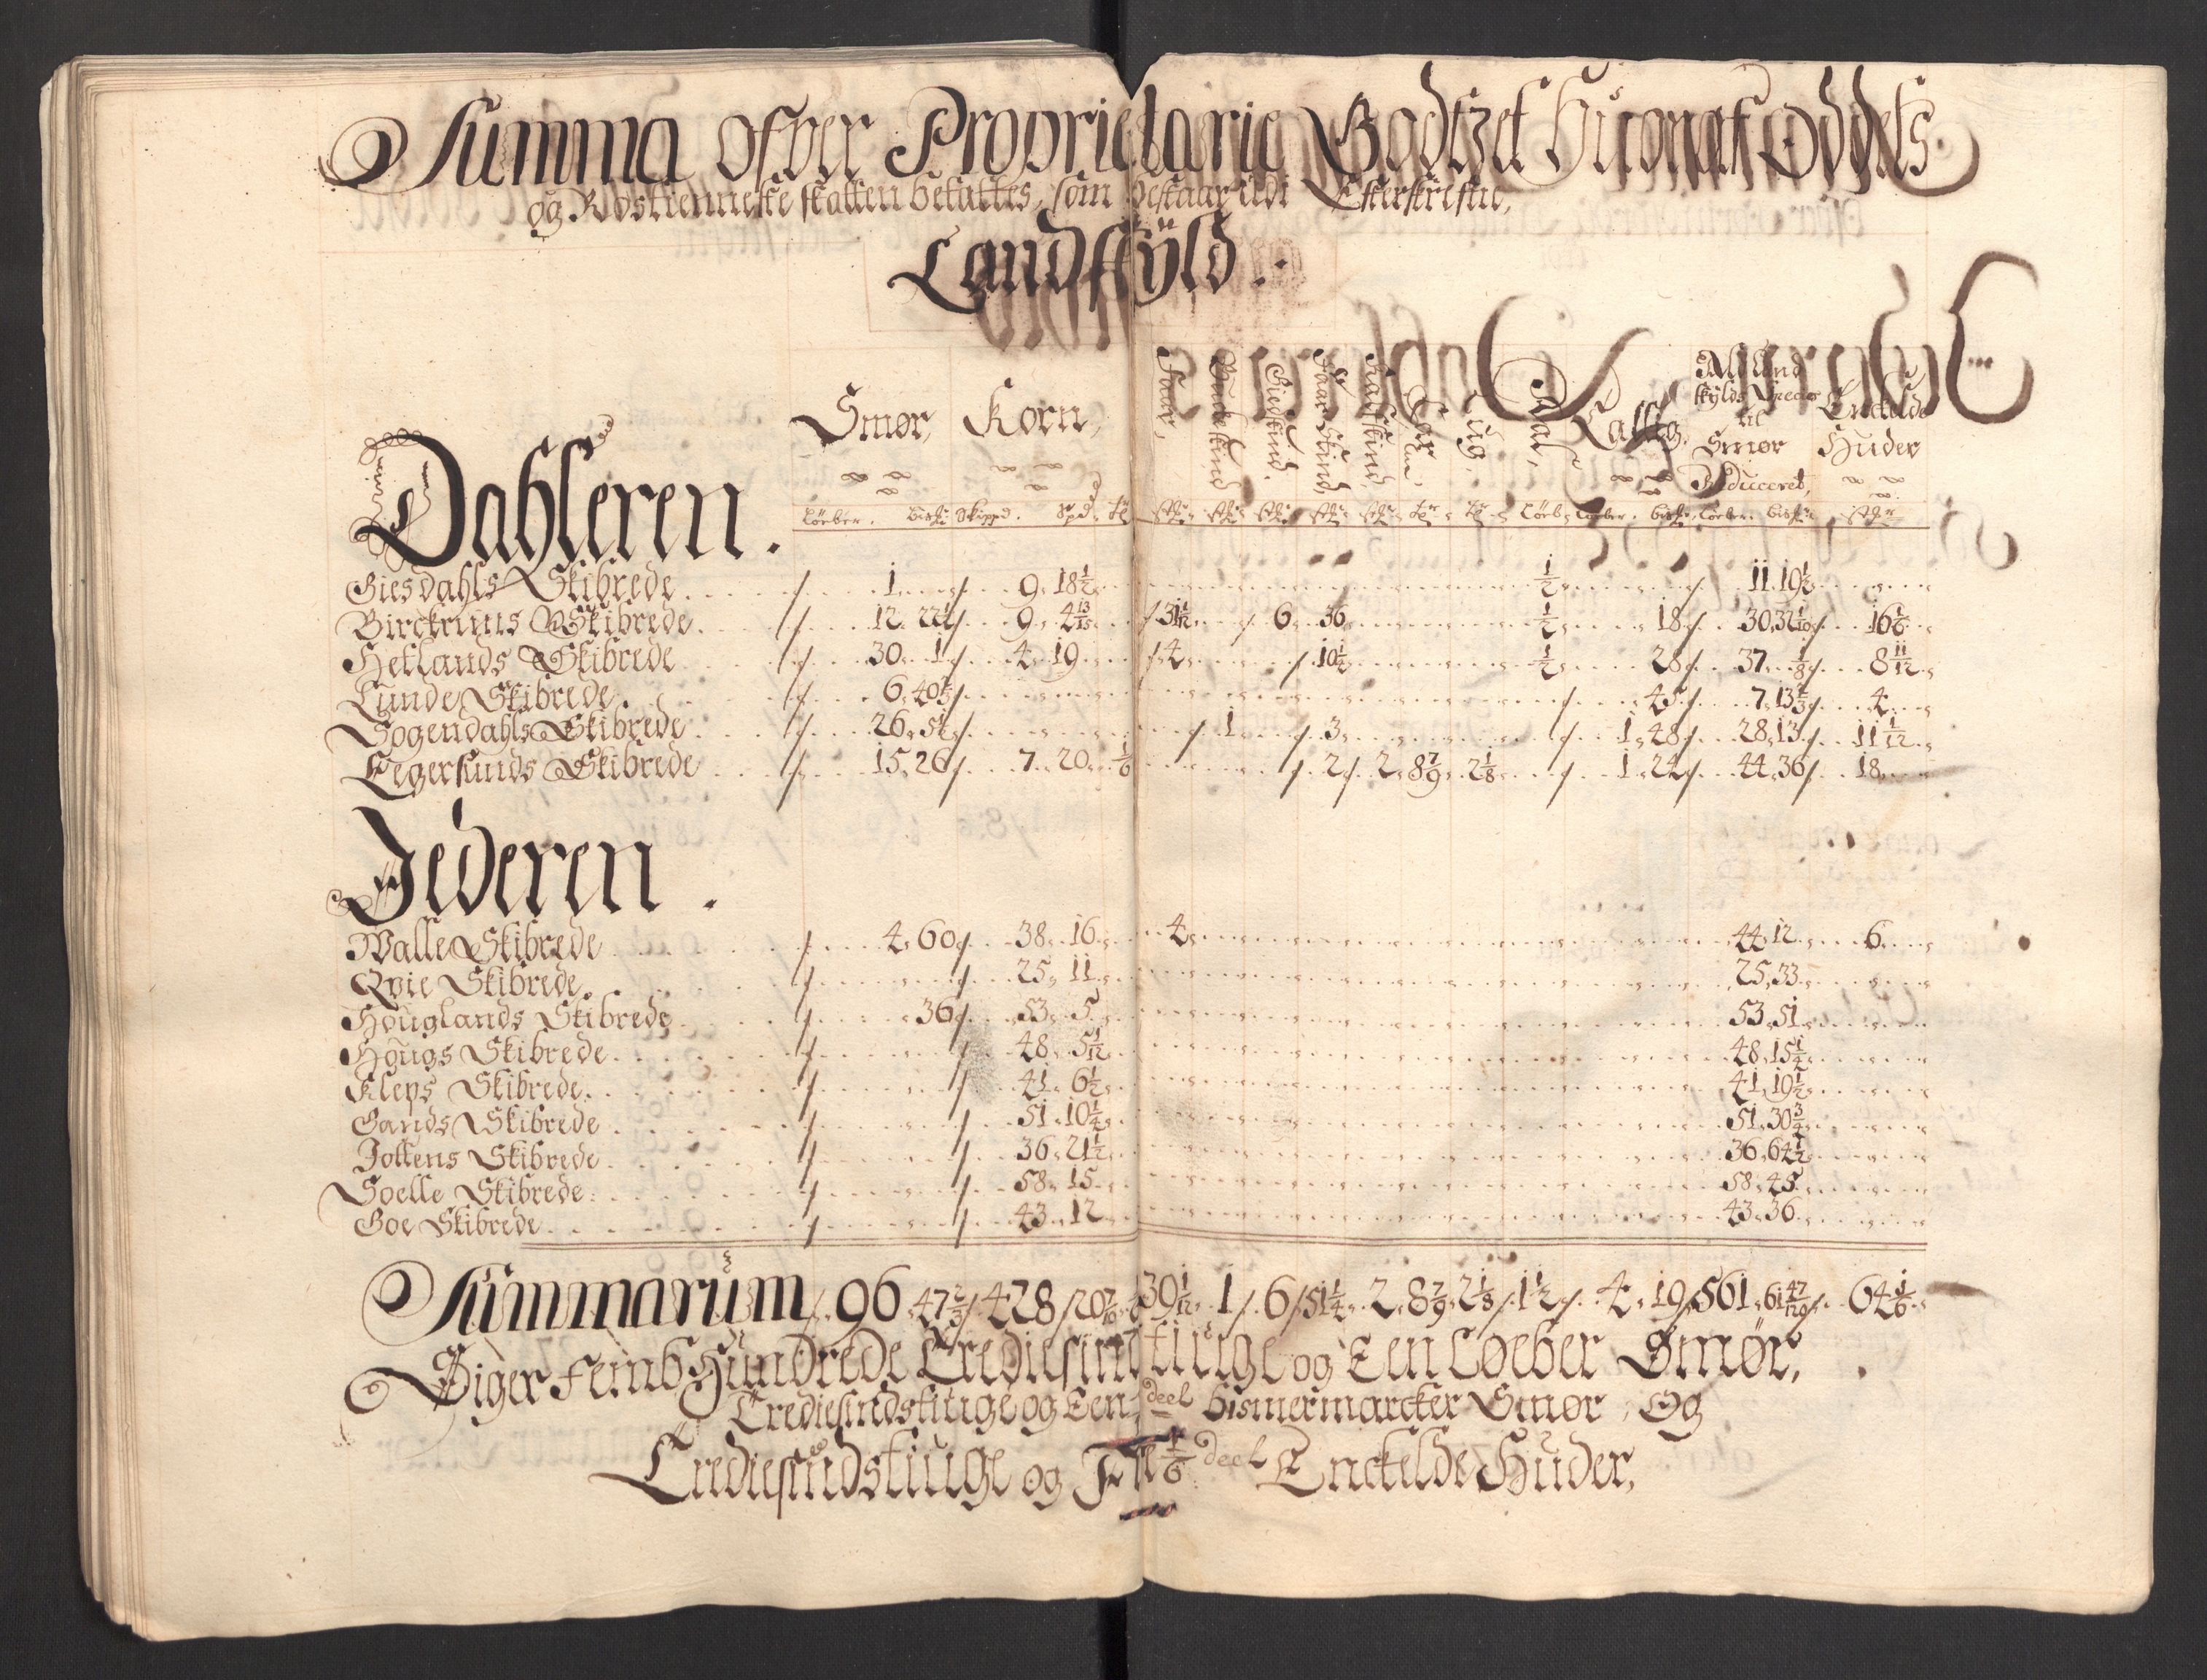 Summa ofver Proprietarie Godtzet Huoraf Oddels
og Rostienneste skatten betattes, som bestaar udi Effterskrefne,
Landskÿld.
Smør, Korn, Faar, Bucke skind, Giedskind, Faar Skind, Kalfskind, Tar Tue, Rug, Salt, Laxtg. All Land skÿlds Specier til Smør Reduceret, Enckelde Huder
Löeber. Bisk: Skippd. Spd. Löeb Löeber. Bisk: Löeber. Bisk:
Dahleren.
Giesdahls Skibrede 1 9 18 1/2 1/2 11 10 1/2
Birckrims Skibrede 12 22 1/2 9 4 13/15 31 1/12 6 36 1/2 18 30 32 1/10 16 1/6
Hetlands Skibrede 30 1 4 19 4 10 1/2 1/2 28 37 1/8 8 11/12
Lunde Skibrede 6 40 1/3 45 7 13 1/3 4
Sogendahls Skibrede 26 51 1 3 1 48 28 13 11 1/12
Eegersunds Skibrede 15 26 7 20 1/6 2 2 8 7/9 2 1/8 1 24 44 36 18
Jederen.
Walle Skibrede 4 60 38 16 4 44 12 6
Qvie Skibrede 25 11 25 33
Houglands Skibrede 36 53 5 53 51
Hougs Skibrede 48 5 1/12 48 15 1/4
Kleps Skibrede 41 6 1/2 41 19 1/2
Gands Skibrede 51 10 1/4 51 30 3/4
Jottens Skibrede 36 21 1/2 36 64 1/2
Soelle Skibrede 58 15 58 45
Goe Skibrede 43 12 43 36
Summarum 96 47 2/3 428 20 7/10 39 1/12 1 6 51 1/4 2 8 7/9 2 1/8 1 1/2 4 19 561 61 47/120 64 1/6
Siger Femb Hundrede Trediesindstiuge og Een Løeber Smør,
Trediesindstiuge og Een deel bismermarcker Smør, Og
Trediesindstiuge og Fire 1/6 deel Enckelde Huder,